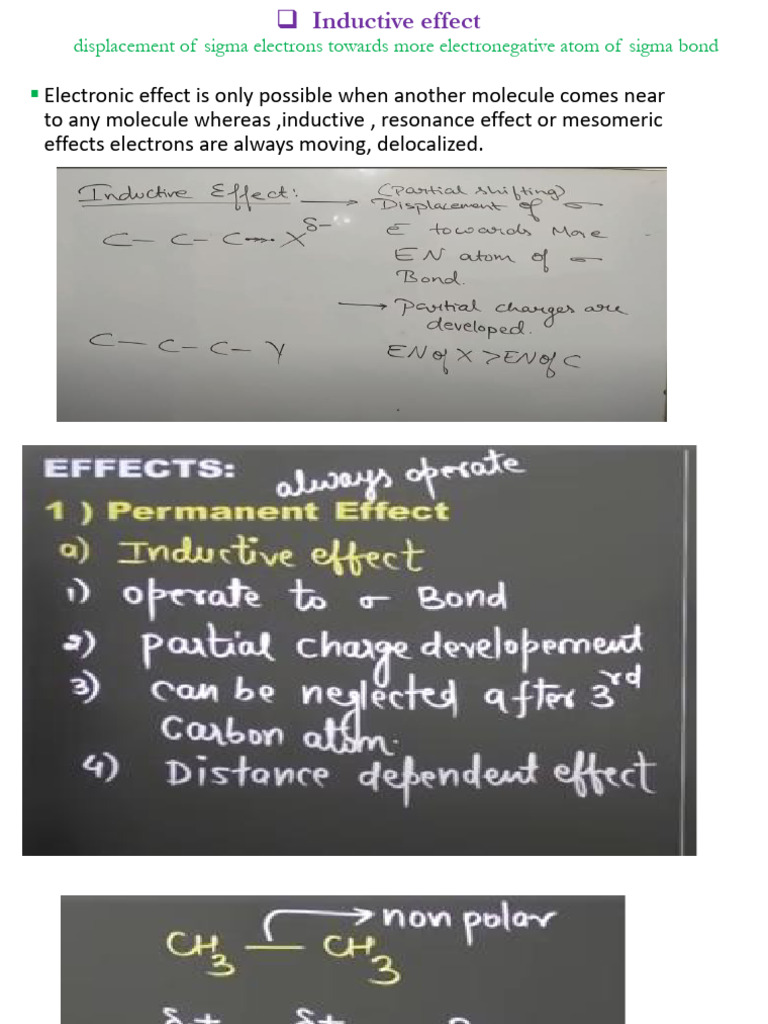 ❑ Inductive effect
displacement of sigma electrons towards more electronegative atom of sigma bond
▪ Electronic effect is only possible when another molecule comes near
to any molecule whereas ,inductive , resonance effect or mesomeric
effects electrons are always moving, delocalized.
Inductive Effect: → (Partial shifting)
Displacement of σ
C – C – C – X δ– e towards More
EN atom of σ
Bond.
→ Partial charges are
developed.
C – C – C – Y EN of X > EN of C
EFFECTS: always operate
1 ) Permanent Effect
a) Inductive effect
1) operate to σ Bond
2) partial charge developement
3) can be neglected after 3rd
Carbon atom.
4) Distance dependent effect
→ non polar
CH3 — CH3
δ+ δ+